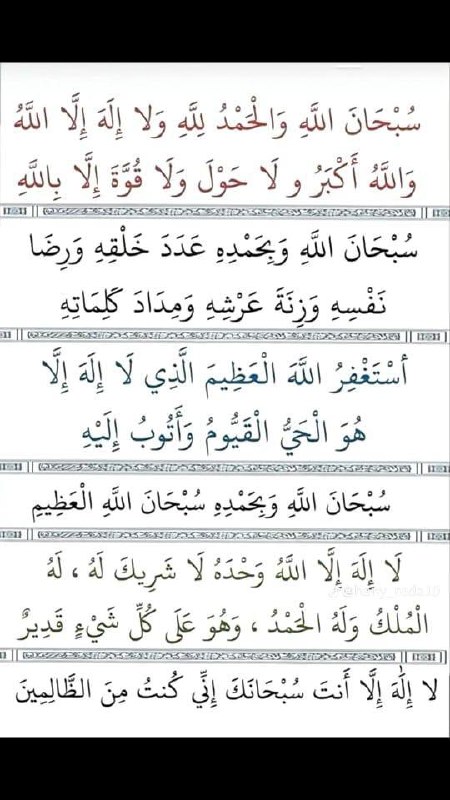 سُبْحَانَ اللَّهِ وَالْحَمْدُ لِلَّهِ وَلا إِلَهَ إِلَّا اللَّهُ
وَاللَّهُ أَكْبَرُ و لَا حَوْلَ وَلَا قُوَّةَ إِلَّا بِاللَّهِ
سُبْحَانَ اللَّهِ وَبِحَمْدِهِ عَدَدَ خَلْقِهِ وَرِضَا
نَفْسِهِ وَزِنَةَ عَرْشِهِ وَمِدَادَ كَلِمَاتِهِ
أسْتَغْفِرُ اللَّهَ الْعَظِيمَ الَّذِي لَا إِلَهَ إِلَّا
هُوَ الْحَيُّ الْقَيُّومُ وَأَتُوبُ إِلَيْهِ
سُبْحَانَ اللَّهِ وَبِحَمْدِهِ سُبْحَانَ اللَّهِ الْعَظِيمِ
لَا إِلَهَ إِلَّا اللَّهُ وَحْدَهُ لَا شَرِيكَ لَهُ ، لَهُ
الْمُلْكُ وَلَهُ الْحَمْدُ ، وَهُوَ عَلَى كُلِّ شَيْءٍ قَدِيرٌ
لا إِلَٰهَ إِلَّا أَنتَ سُبْحَانَكَ إِنِّي كُنتُ مِنَ الظَّالِمِينَ